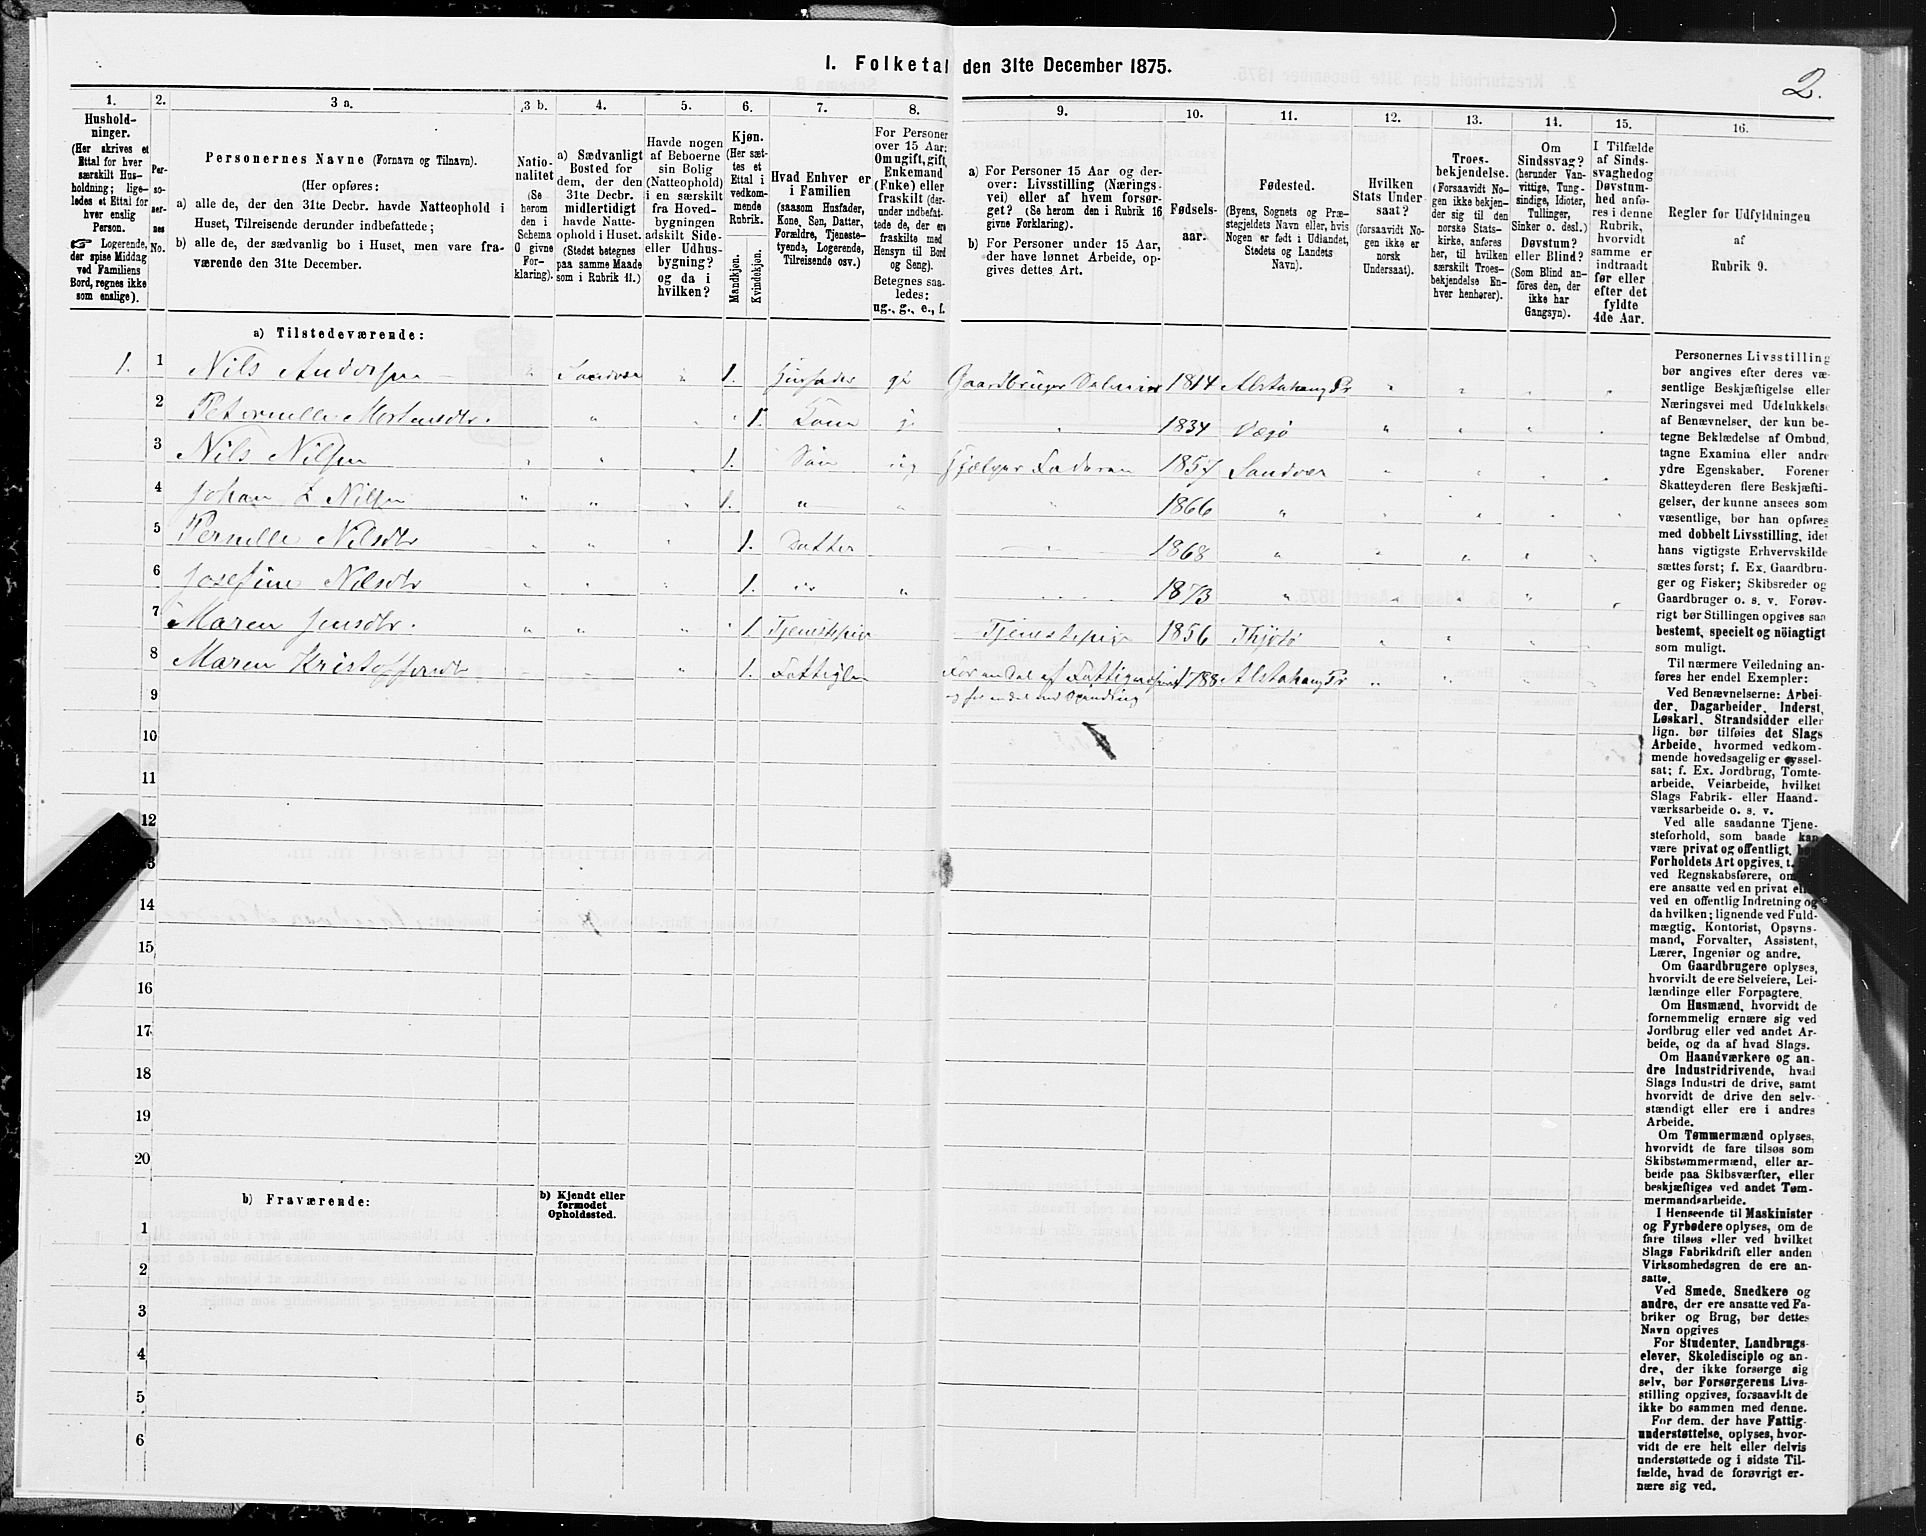 I. Folketal den 31te December 1875.
2.
1.
Hushold-
ninger.
(Her skrives et
Ettal for hver
særskilt Hus-
holdning; lige-
ledes et Ettal for
hver enslig
Person.
☞ Logerende,
der spise Middag
ved Familiens
Bord, regnes ikke
som enslige).
2.
Per-
so-
ner-
nes
No.
3 a.
Personernes Navne (Fornavn og Tilnavn).
(Her opføres:
a) alle de, der den 31te Decbr. havde Natteophold i
Huset, Tilreisende derunder indbefattede;
b) alle de, der sædvanlig bo i Huset, men vare fra-
værende den 31te December.
3 b.
Natio-
nalitet
(Se
herom
den i
Schema
C givne
For-
klaring).
4.
a) Sædvanligt
Bosted for
dem, der den
31te Decbr.
midlertidigt
havde Natte-
ophold i Huset.
(Stedet betegnes
paa samme Maade
som i Rubrik 11.)
5.
Havde nogen
af Beboerne
sin Bolig
(Natteophold)
i en særskilt
fra Hoved-
bygningen
adskilt Side-
eller Udhus-
bygning?
og da i
hvilken?
6.
Kjøn.
(Her sæt-
tes et
Ettal i
vedkom-
mende
Rubrik.
Mandkjøn.
Kvindekjøn.
7.
Hvad Enhver er
i Familien
(saasom Husfader,
Kone, Søn, Datter,
Forældre, Tjeneste-
tyende, Logerende,
Tilreisende osv.)
8.
For Personer
over 15 Aar:
Om ugift, gift,
Enkemand
(Enke) eller
fraskilt (der-
under indbefat-
tede de, der ere
fraskilte med
Hensyn til Bord
og Seng).
Betegnes saa-
ledes:
ug., g., e., f.
9.
a) For Personer 15 Aar og der-
over: Livsstilling (Nærings-
vei) eller af hvem forsør-
get? (Se herom den i Rubrik 16
givne Forklaring).
b) For Personer under 15 Aar,
der have lønnet Arbeide, op-
gives dettes Art.
10.
Fødsels-
aar.
11.
Fødested.
(Byens, Sognets og Præ-
stegjeldets Navn eller, hvis
Nogen er født i Udlandet,
Stedets og Landets
Navn).
12.
Hvilken
Stats Under-
saat?
(forsaavidt No-
gen ikke er
norsk
Undersaat).
13.
Troes-
bekjendelse.
(Forsaavidt No-
gen ikke bekjen-
der sig til den
norske Stats-
kirke, anføres
her, til hvilken
særskilt Troes-
bekjendelse En-
hver henhører).
14.
Om
Sindssvag?
(herunder Van-
vittige, Tung-
sindige, Idioter,
Tullinger,
Sinker o. desl.)
Døvstum?
eller Blind?
(Som Blind an-
føres den, der
ikke har
Gangsyn).
15.
I Tilfælde
af Sinds-
svaghedog
Døvstum-
hed anfø-
res i denne
Rubrik,
hvorvidt
samme er
indtraadt
før eller
efter det
fyldte
4de Aar.
16.
Regler for Udfyldningen
af
Rubrik 9.
a) Tilstedeværende:
1. 1 Nils Andersen " Sandvær " 1. Husfader gi Gaardbruger 1814 Alstahaug Pr " " " "
2 Petternelle Mortensdtr. " " " 1. Kone g " 1834 Vægø " " " "
3 Nils Nilsen " " " 1. Søn ug Hjælper Faderen 1857 Sandvær " " " "
4 Johan Nilsen " " " 1. " " " 1866 " " " " "
5 Pernille Nilsdtr " " " 1. Datter " 1868 " " " " "
6 Josefine Nilsdtr " " " 1. " " " 1873 " " " " "
7 Maren Jensdtr. " " " " 1 Tjenestepige Tjenestepige 1856 Thjøtø " " " "
8 Maren Kristoffersdtr - - " 1. Fattiglem For en Del af 1788 Alstahaug Pr " " " "
9
10
11
12
13
14
15
16
17
18
19
20
b) Fraværende:
b) Kjendt eller
formodet
Opholdssted.
1
2
3
4
5
6
Personernes Livsstilling
bør angives efter deres væ-
sentlige Beskjæftigelse eller
Næringsvei med Udelukkelse
af Benævnelser, der kun be-
tegne Beklædelse af Ombud,
tagne Examina eller andre
ydre Egenskaber. Forener
Skatteyderen flere Beskjæfti-
gelser, der kunne ansees som
væsentlige, bør han opføres
med dobbelt Livsstilling, idet
hans vigtigste Erhvervskilde
sættes først; f. Ex. Gaardbru-
ger og Fisker; Skibsreder og
Gaardbruger o. s. v. Forøv-
rigt bør Stillingen opgives saa
bestemt, specielt og nöiagtigt
som muligt.
Til nærmere Veiledning an-
føres her endel Exempler:
Ved Benævnelserne: Arbei-
der, Dagarbeider, Inderst,
Løskarl, Strandsidder eller
lign. bør tilføies det Slags
Arbeide, hvormed vedkom-
mende hovedsagelig er sysselsat;
f. Ex. Jordbrug, Tomte-
arbeide, Veiarbeide, hvilket
Slags Fabrik- eller Haand-
værksarbeide o. s. v.
Ved alle saadanne Tjene-
steforhold, som baade kan
være privat og offentligt,
Forholdets Art opgives, t.
ved Regnskabsførere, om
ere ansatte ved en privat
ved en offentlig Indretning og
da hvilken; lignende ved Fuld-
mægtig, Kontorist, Opsyns-
mand, Forvalter, Assistent,
Lærer, Ingeniør og andre.
Om Gaardbrugere oplyses,
hvorvidt de ere Selveiere, Lei-
lændinge eller Forpagtere.
Om Husmænd, hvorvidt de
fornemmelig ernære sig ved
Jordbrug eller ved andet Ar-
beide, og da af hvad Slags.
Om Haandværkere og an-
dre Industridrivende, hvad
Slags Industri de drive, samt
hvorvidt de drive den selv-
stændigt eller ere i andres
Arbeide.
Om Tømmermænd oplyses,
hvorvidt de fare tilsøs som
Skibstømmermænd, eller ar-
beide paa Skibsværfter, eller
beskjæftiges ved andet Tøm-
mermandsarbeide.
I Henseende til Maskinister
og Fyrbødere oplyses, om de
fare tilsøs eller ved hvilket
Slags Fabrikdrift eller anden
Virksomhedsgren de ere an-
satte.
Ved Smede, Snedkere og
andre, der ere ansatte ved Fa-
briker og Brug, bør dettes
Navn opgives
For Studenter, Landbrugs-
elever, Skoledisciple og an-
dre, der ikke forsørge sig
selv, bør Forsørgerens Livs-
stilling opgives, forsaavidt de
ikke bo sammen med denne.
For dem, der have Fattig-
understøttelse, oplyses, hvor-
vidt de ere helt eller delvis
understøttede og i sidste Til-
fælde, hvad de forøvrigt er-
nære sig ved.